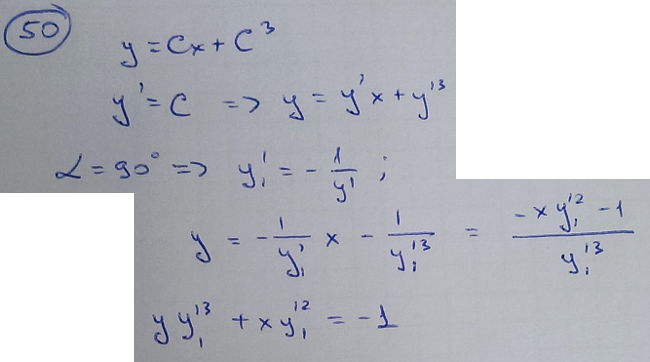 50
y = Cx + C³
y' = C => y = y'x + y'³
α = 90° => y₁' = - 1/y' ;
y = - 1/y₁' x - 1/y₁'³ = (-xy₁'² - 1)/y₁'³
yy₁'³ + xy₁'² = -1